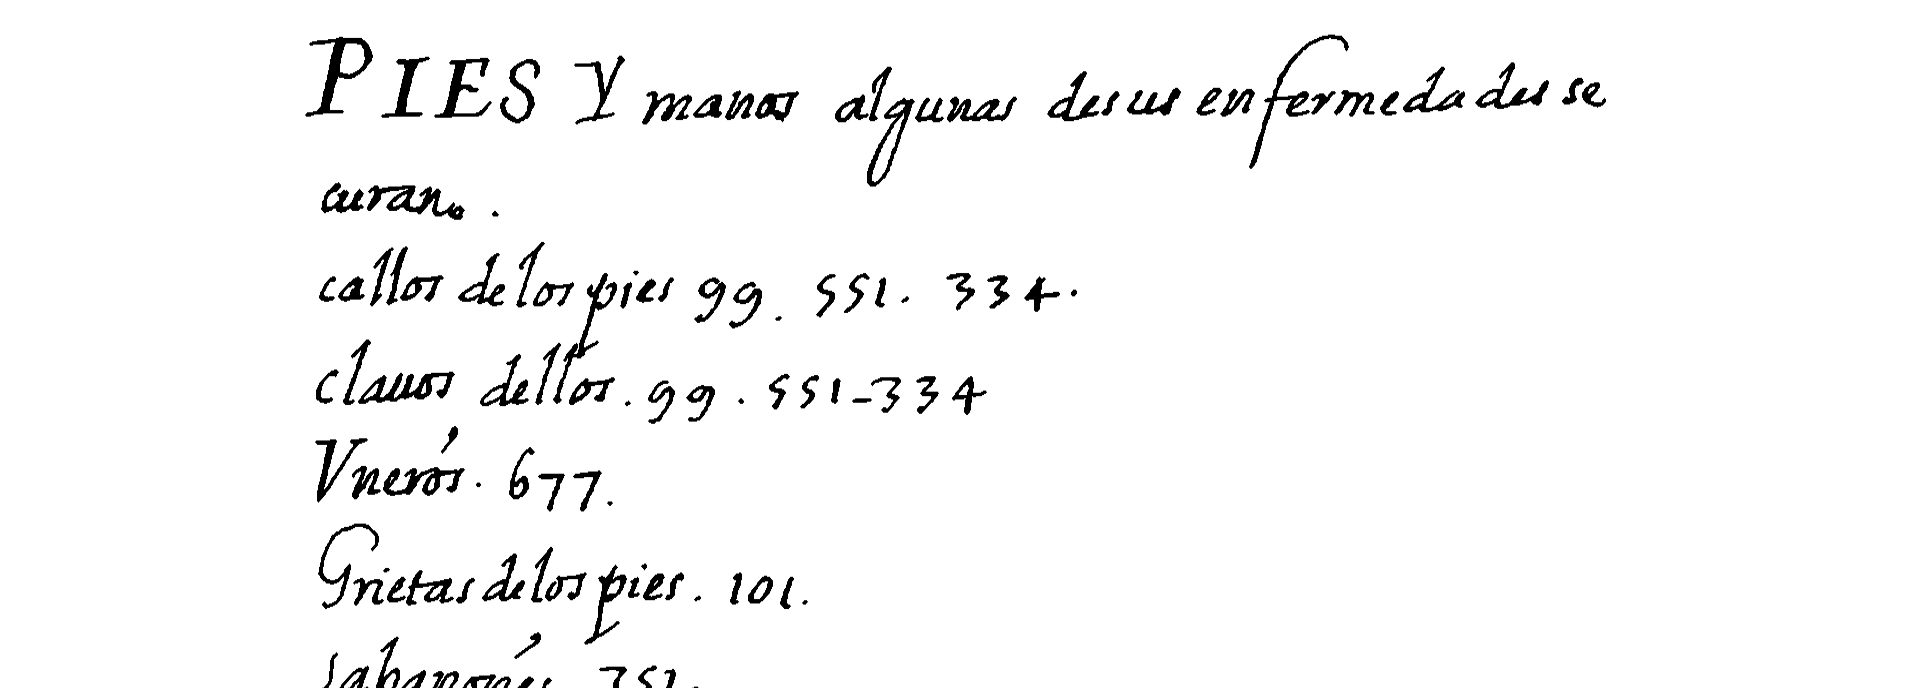 PIES Y manos algunas desus enfermedades se
curan.
callos delos pies 99. 551. 334.
clauos dellos. 99. 551-334
Vnerós. 677.
Grietas delos pies. 101.